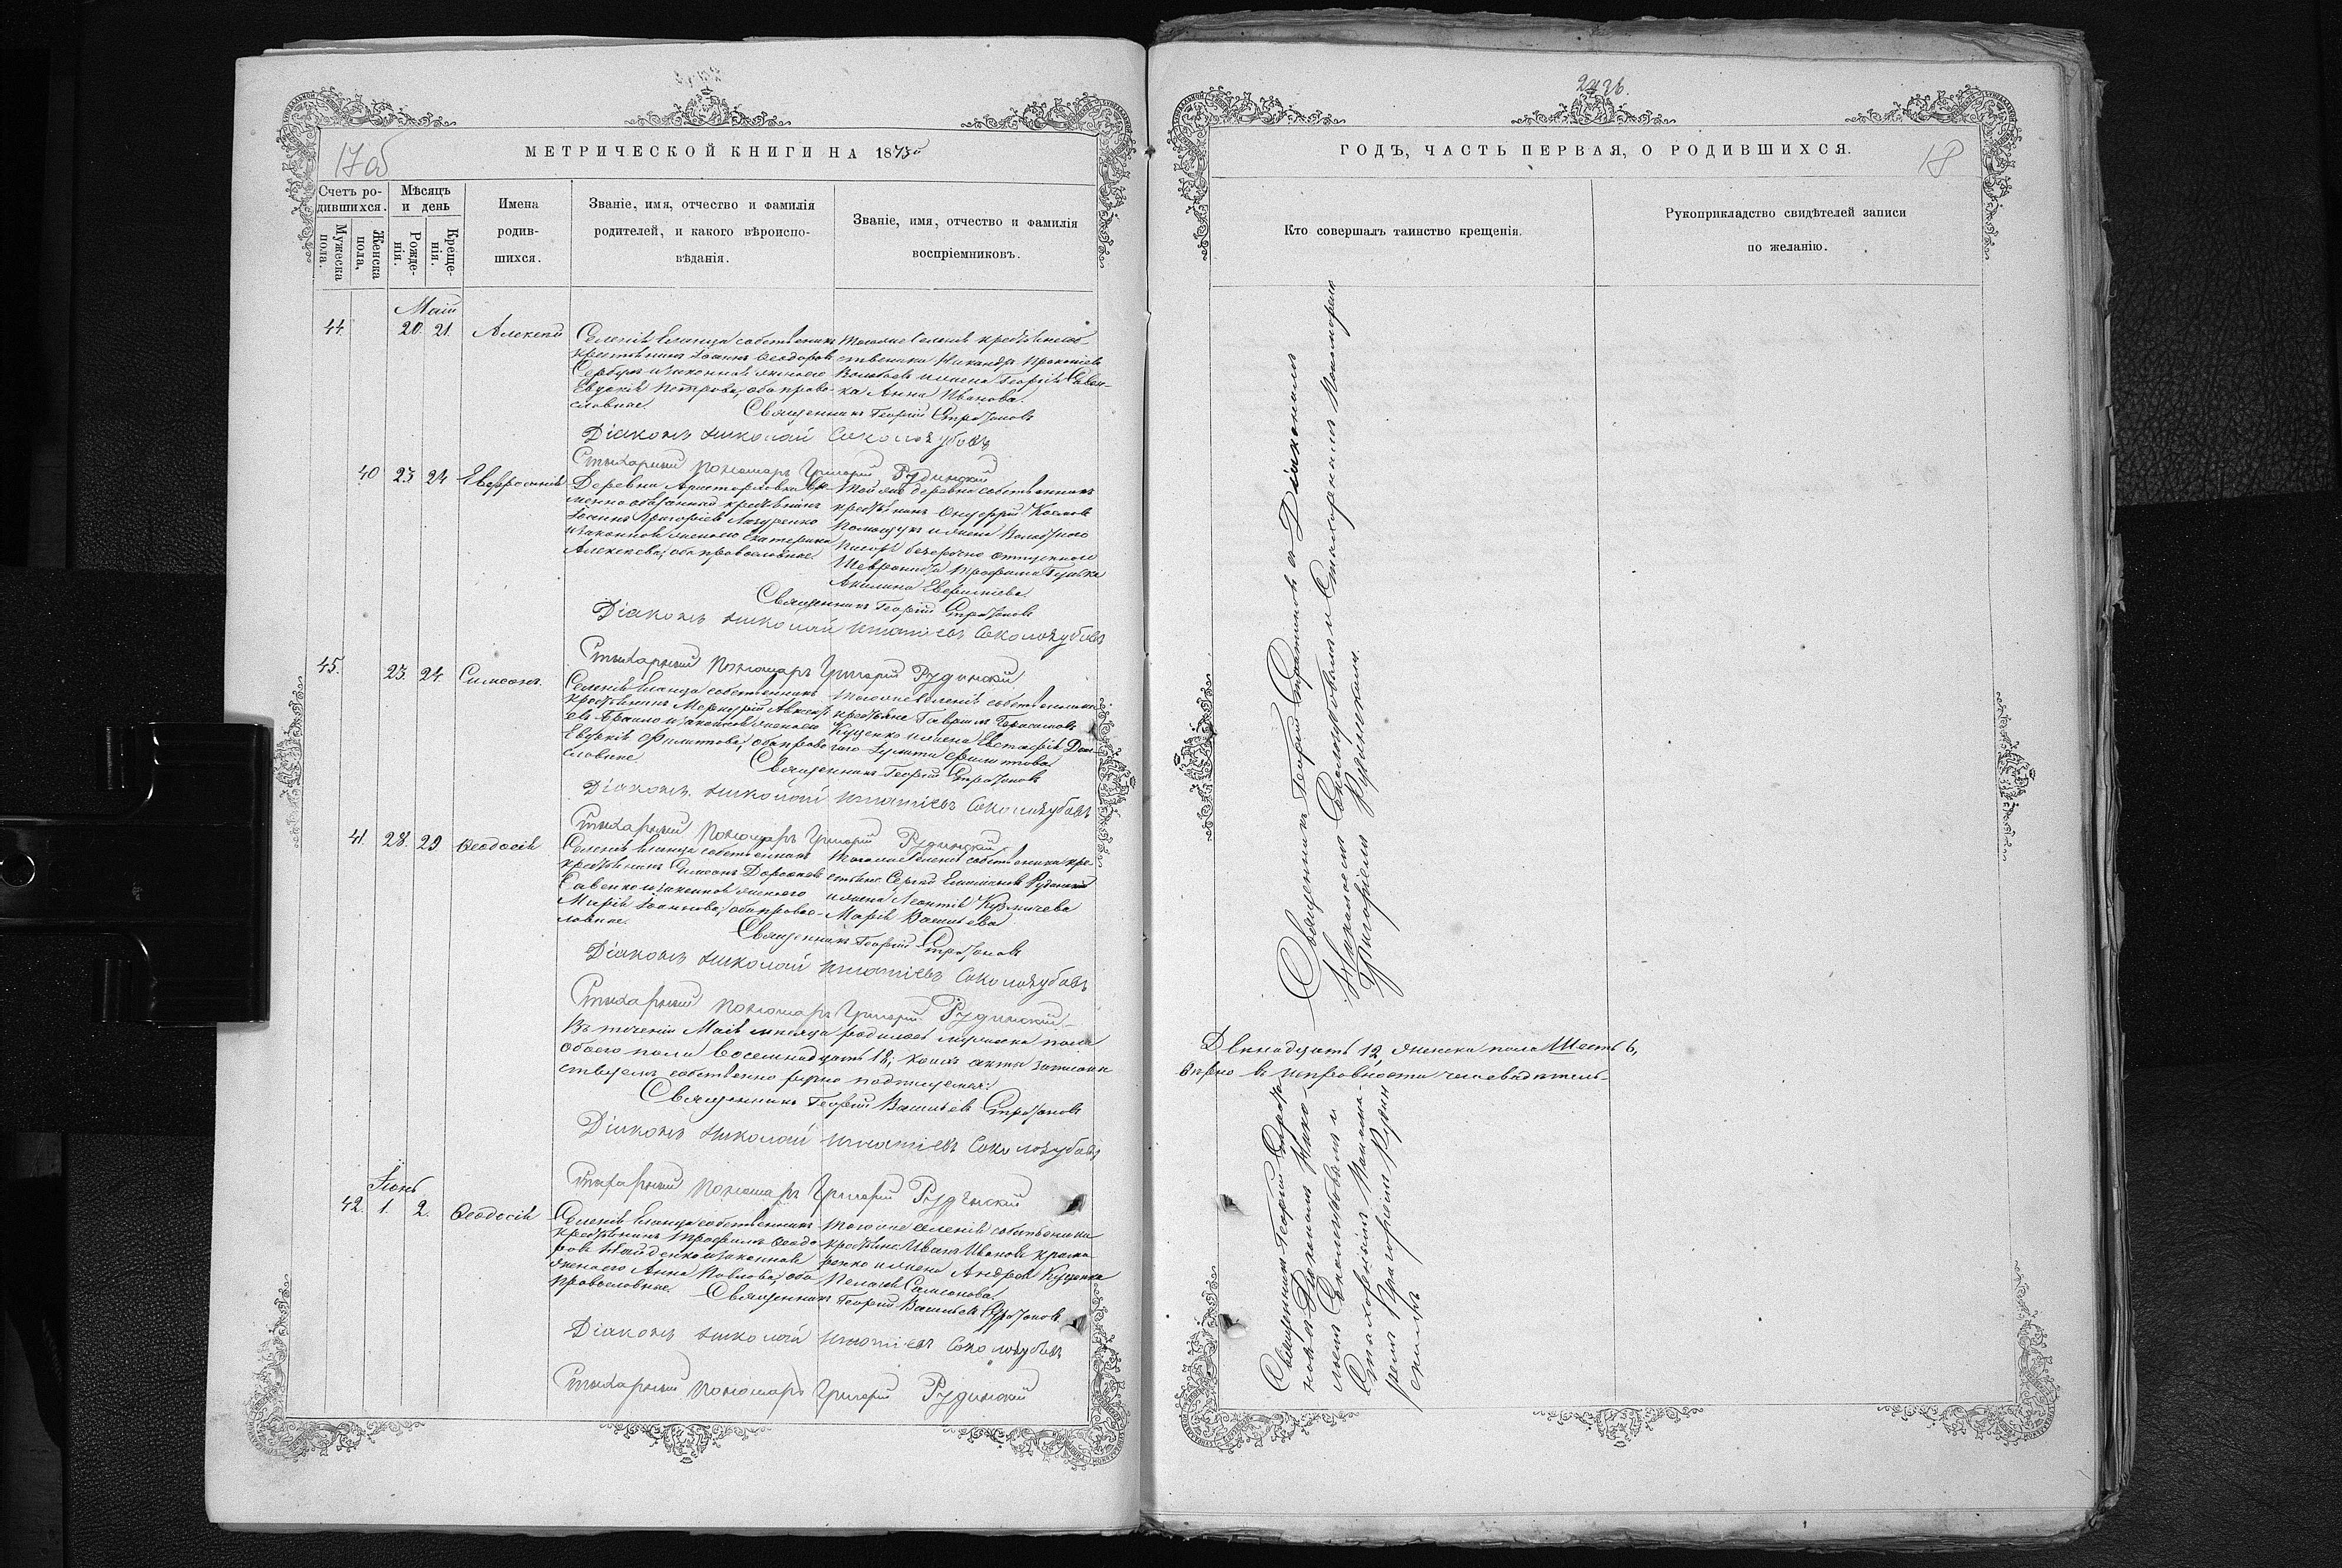 17 об
МЕТРИЧЕСКОЙ КНИГИ НА 1875й
Счетъ ро-
дившихся.
Мужеска
пола.
Женска
пола.
Мѣсяцъ
и день
Рожде-
нія.
Креще-
нія.
Имена
родив-
шихся.
Званіе, имя, отчество и фамилія
родителей, и какого вѣроиспо-
вѣданія.
Званіе, имя, отчество и фамилія
воспріемниковъ.
Май
44. 20. 21. Алексей
Селенія Еланца собственникъ
крестьянинъ Іоаннъ Ѳеодоровъ
Сербинъ и законная жена его
Евдокія Петрова, оба право-
славные.
Того же селенія крестьянина соб-
ственника Никандра Прокопіева
ка Анна Иванова.
Священникъ Георгій Стратоновъ
Діаконъ Николай Сокологубовъ
Стихарный Пономарь Григорій Рудинскій
40 23 24 Евфросинія
Деревни Аристарховки вре-
менно обязанный крестьянинъ
Іоаннъ Григоріевъ Лазуренко
и законная жена его Екатерина
Алексеева, оба православные.
Той же деревни собственникъ
крестьянинъ Онуфрій Космовъ
Акилина Евфимиева.
Священникъ Георгій Стратоновъ
Діаконъ Николай Игнатіевъ Сокологубовъ
Стихарный Пономарь Григорій Рудинскій
45. 23. 24. Симеонъ.
Селенія Еланца собственникъ
крестьянинъ Меркурій Алексе-
евъ Браило и законная жена его
Евдокія Филиппова, оба право-
славные
Того же селенія собственника
крестьяне Гавріилъ Герасимовъ
Куценко и жена Евстафія Дани-
Священникъ Георгій Стратоновъ
Діаконъ Николай Игнатіевъ Сокологубовъ
Стихарный Пономарь Григорій Рудинскій
41. 28. 29 Ѳеодосія
Селенія Еланца собственникъ
крестьянинъ Симеонъ Дорофеевъ
Савенко и законная жена его
Марія Іоаннова, оба право-
славные.
Того же селенія собственника кре-
стьяне Сергій Емельяновъ Рудинскій
и жена Леонтія Кузмичева
Марія Васильева
Священникъ Георгій Стратоновъ
Діаконъ Николай Игнатіевъ Сокологубовъ
Стихарный Пономарь Григорій Рудинскій
Въ теченіи Маія месяца родилось мужеска пола
Двенадцать 12, женска пола Шесть 6,
обоего пола восемнадцать 18; коихъ акты записаны
верно въ исправности чего свидетель-
ствуемъ собственно ручно подписуемся:
Священникъ Георгій Васильевъ Стратоновъ
Діаконъ Николай Игнатіевъ Сокологубовъ
Стихарный Пономарь Григорій Рудинскій
Іюнь
42. 1. 2. Ѳеодосія
Селенія Еланца собственникъ
крестьянинъ Трофимъ Ѳеодо-
ровъ Найденко и законная
жена его Анна Павлова, оба
православные.
Того же селенія собственника
крестьяне Иванъ Ивановъ
и жена Андрея Куценка
Пелагія Самсонова.
Священникъ Георгій Васильевъ Стратоновъ
Діаконъ Николай Игнатіевъ Сокологубовъ
Стихарный Пономарь Григорій Рудинскій
18
ГОДЪ, ЧАСТЬ ПЕРВАЯ, О РОДИВШИХСЯ.
Кто совершалъ таинство крещенія.
Рукоприкладство свидѣтелей записи
по желанію.
Священникъ Георгій Стратоновъ съ Діакономъ
Николаемъ Сокологубовымъ и Стихарнымъ Пономаремъ
Григоріемъ Рудинскимъ.
Священникъ Георгій Страто-
новъ съ Діакономъ Нико-
лаемъ Сокологубовымъ и
Стихарнымъ Понома-
ремъ Григоріемъ Рудин-
скимъ